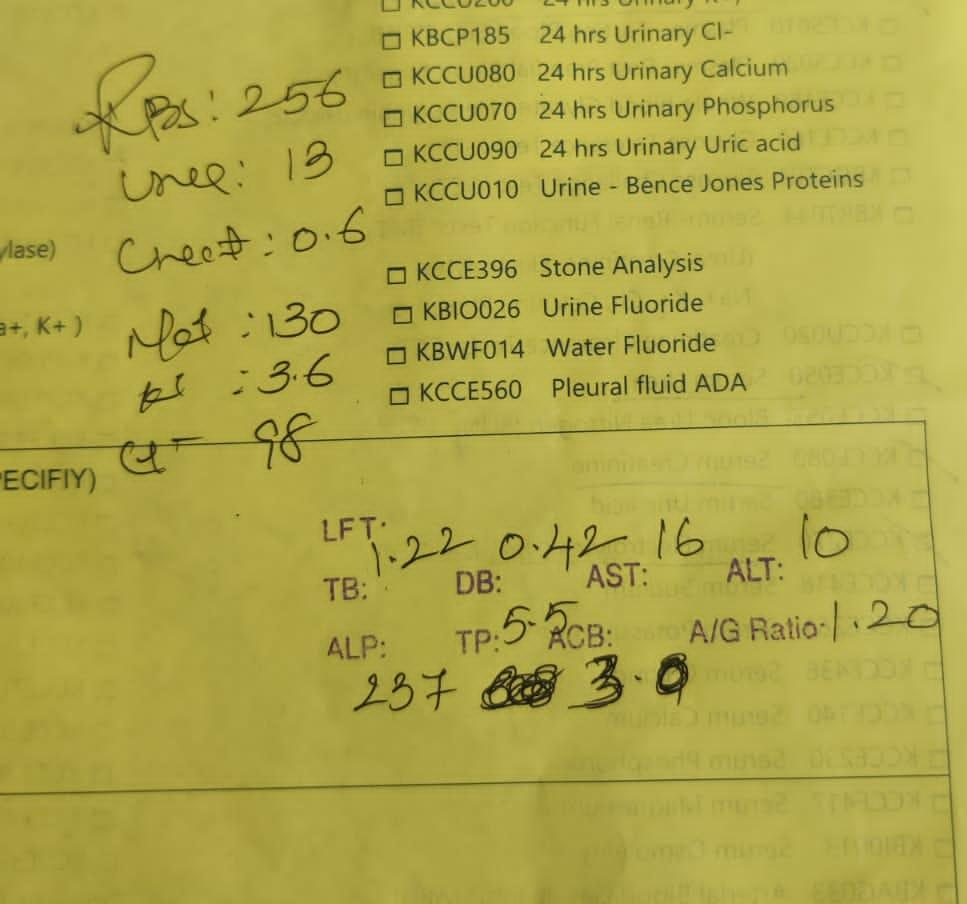 KBCP185 24 hrs Urinary Cl-
KCCU080 24 hrs Urinary Calcium
KCCU070 24 hrs Urinary Phosphorus
KCCU090 24 hrs Urinary Uric acid
KCCU010 Urine - Bence Jones Proteins
KCCE396 Stone Analysis
KBIO026 Urine Fluoride
KBWF014 Water Fluoride
KCCE560 Pleural fluid ADA
RBS: 256
Urea: 13
Creat: 0.6
ylase)
Na+ : 130
a+, K+ )
K+ : 3.6
Cl- 98
PECIFIY)
LFT:
1.22 0.42 16 10
TB: DB: AST: ALT:
ALP: TP: 5.5 ACB: A/G Ratio: 1.20
237 3.0